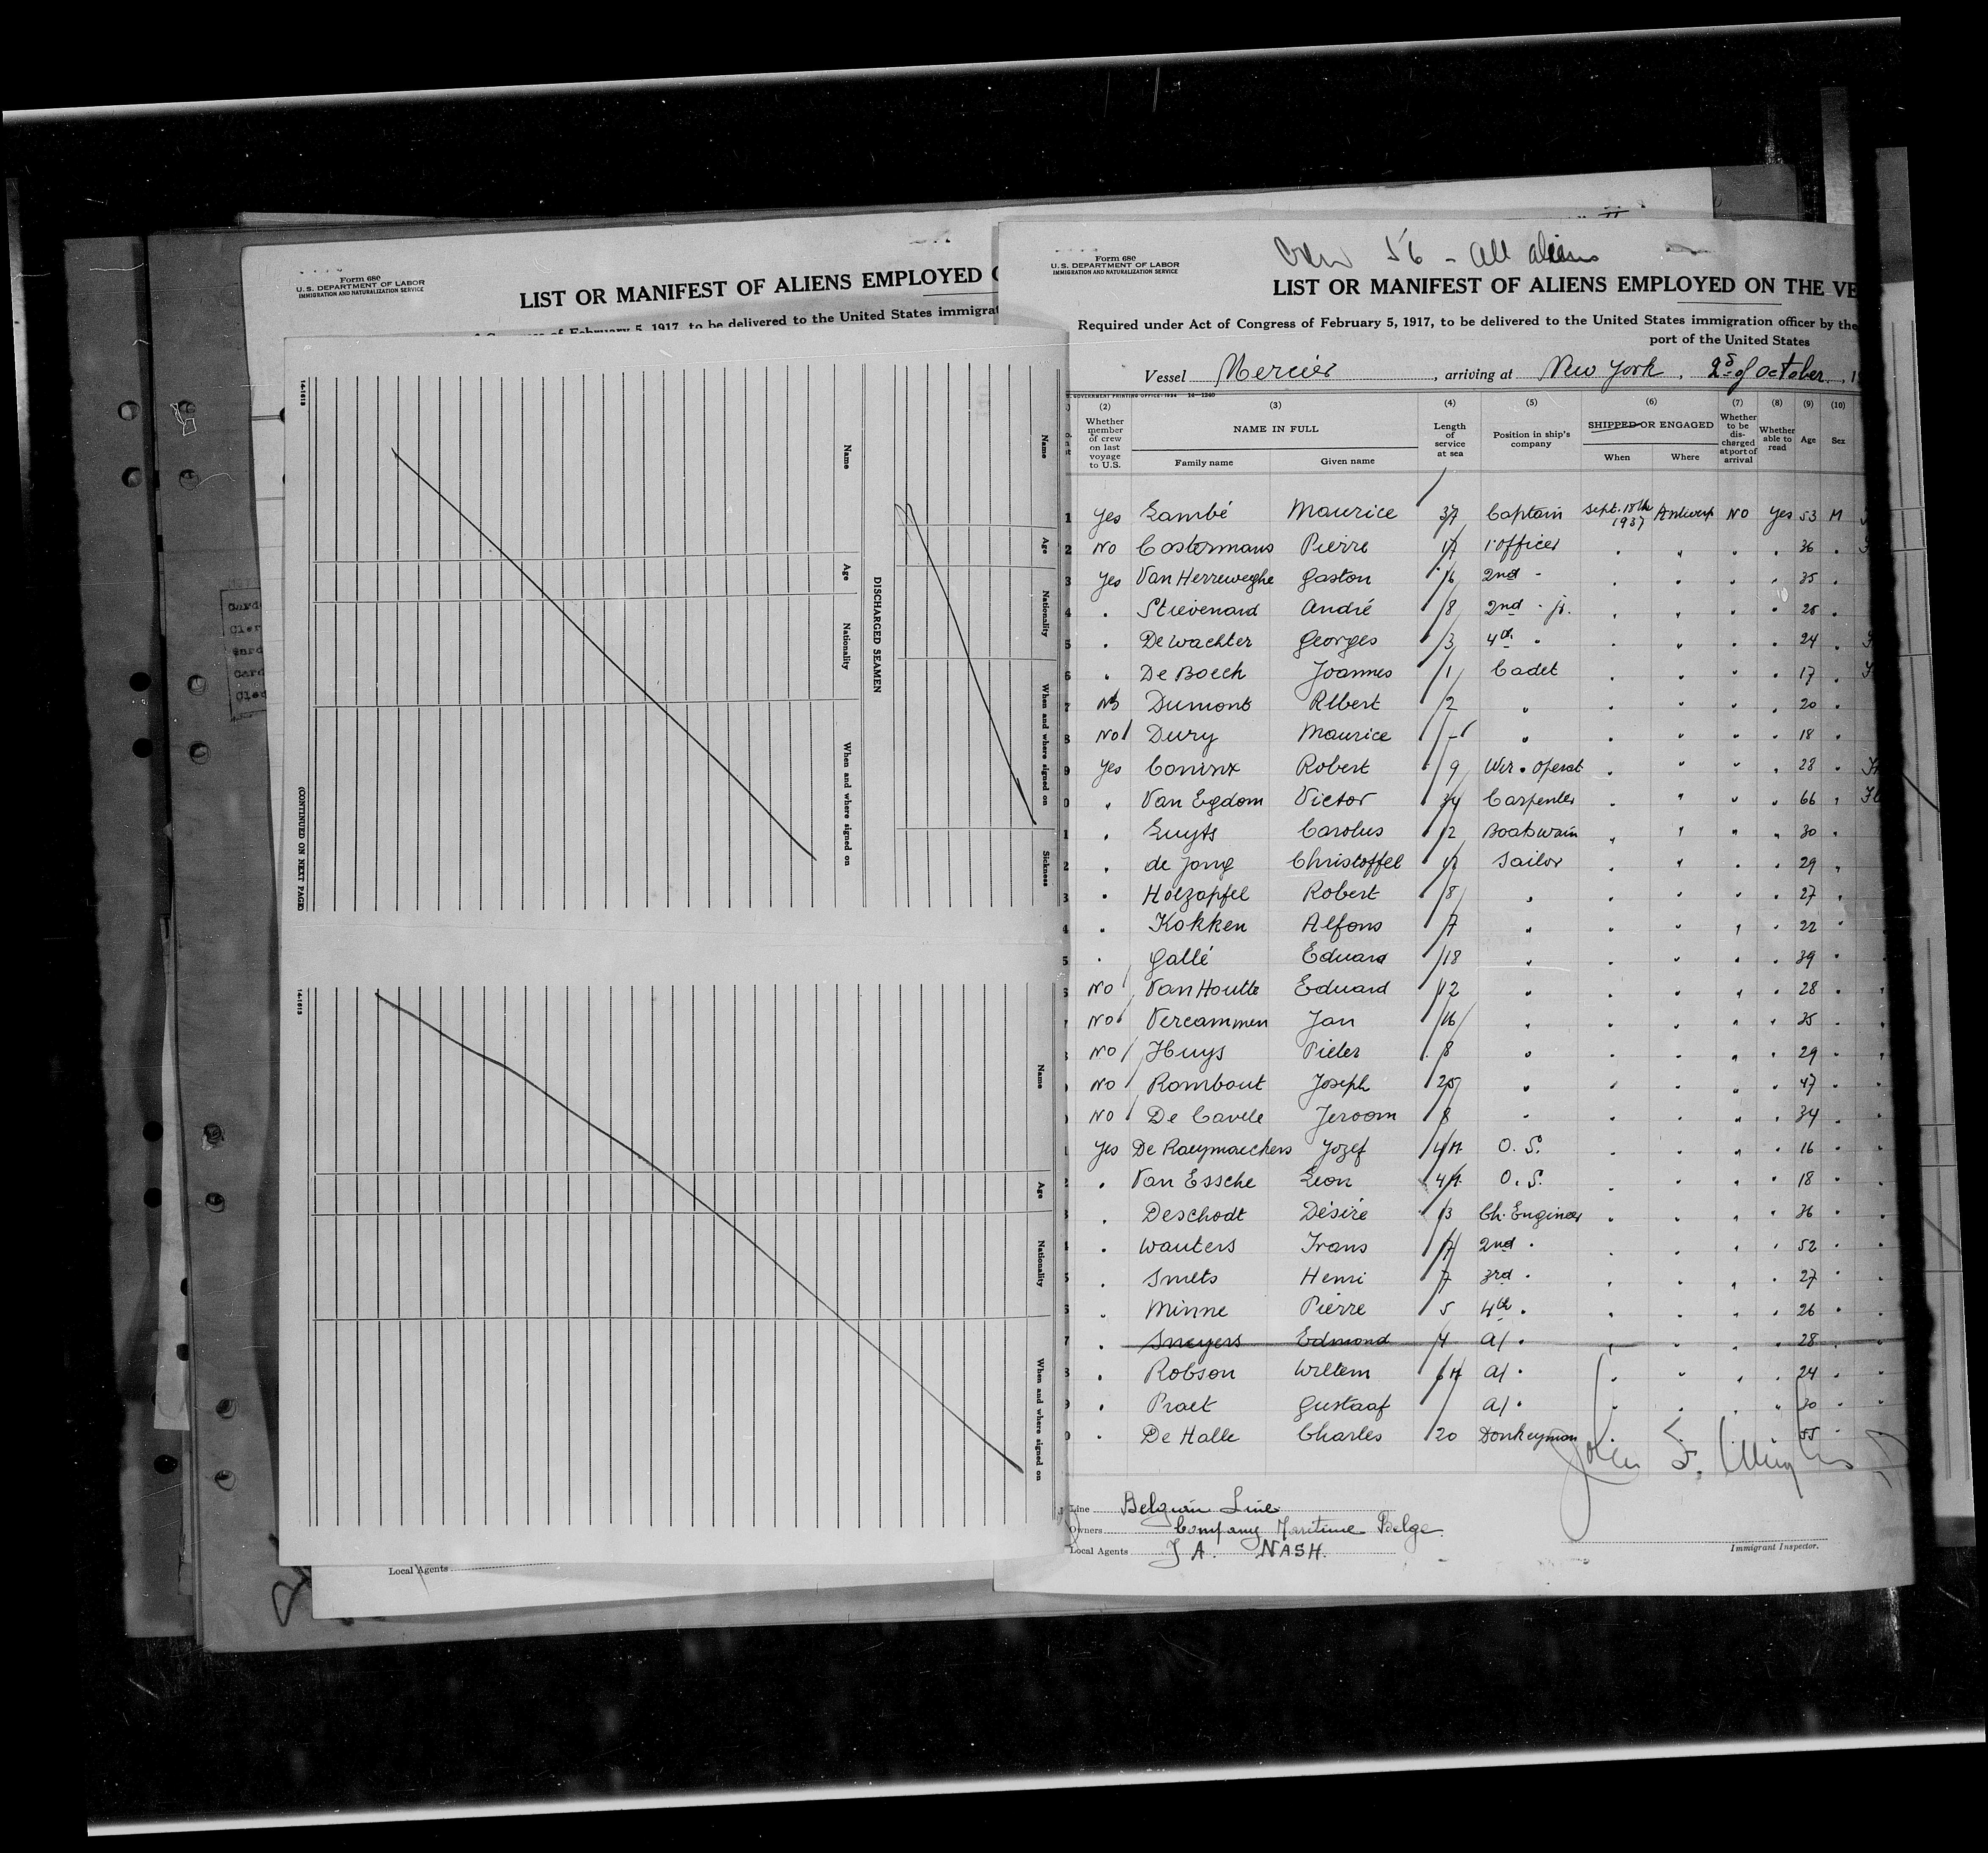 Form 680
U.S. DEPARTMENT OF LABOR
IMMIGRATION AND NATURALIZATION SERVICE
LIST OR MANIFEST OF ALIENS EMPLOYED
of February 5, 1917, to be delivered to the United States immigrat
Name
Age
Nationality
When and where signed on
Sickness
DISCHARGED SEAMEN
Name
Age
Nationality
When and where signed on
(CONTINUED ON NEXT PAGE)
Name
Age
Nationality
When and where signed on
Local Agents
Crew 56 - All aliens
Form 680
U.S. DEPARTMENT OF LABOR
IMMIGRATION AND NATURALIZATION SERVICE
LIST OR MANIFEST OF ALIENS EMPLOYED ON THE VE
Required under Act of Congress of February 5, 1917, to be delivered to the United States immigration officer by the
port of the United States
Vessel Mercier, arriving at New York, 2d of October, 1
(2) (3) (4) (5) (6) (7) (8) (9) (10)
Whether member of crew on last voyage to U.S.
NAME IN FULL
Family name Given name
Length of service at sea
Position in ship's company
SHIPPED OR ENGAGED
When Where
Whether to be discharged at port of arrival
Whether able to read
Age
Sex
1 Yes Lambé Maurice 37 Captain Sept. 18th 1937 Antwerp No Yes 53 M
2 No Costermans Pierre 17 1 officer " " " " 36 "
3 Yes Van Herreweghe Gaston 16 2nd " " " " " 35 "
4 " Stievenard André 8 2nd " jr. " " " "
5 " De Wachter Georges 3 4th " " " " " 24 "
6 " De Boeck Joannes 1 Cadet " " " " 17 "
7 No Dumont Albert 2 " " " " " 20 "
8 No Dury Maurice - " " " " " 18 "
9 Yes Coninx Robert 9 Wir. Operat " " " " 28 "
" Van Egdom Victor 34 Carpenter " " " " 66 "
" Luyts Carolus 12 Boatswain " " " " 30 "
" de Jong Christoffel Sailor " " " " 29 "
" Holzapfel Robert 8 " " " " " 27 "
" Kokken Alfons 7 " " " " " 22 "
" Gallé Eduard 18 " " " " " 39 "
No Van Houtte Eduard 12 " " " " " 28 "
No Vercammen Jan 16 " " " " " 35 "
No Huys Pieter 8 " " " " " 29 "
No Rombout Joseph 25 " " " " " 47 "
No De Cavele Jeroom 8 " " " " " 34 "
Yes De Raeymaeckers Jozef 4 M. O. S. " " " " 16 "
" Van Essche Leon 4 M. O. S. " " " " 18 "
" Deschodt Désiré 13 Ch. Engineer " " " " 36 "
" Wauters Frans 17 2nd " " " " " 52 "
" Smets Henri 7 3rd " " " " " 27 "
" Minne Pierre 5 4th " " " " " 26 "
" Smeyers Edmond 4 a/ " " " " " 28 "
" Robson Willem 6 M a/ " " " " " 24 "
" Praet Gustaaf a/ " " " " " 30 "
" De Halle Charles 20 Donkeyman " " " " 55 "
Line Belgian Line
Owners Company Maritime Belge
Local Agents J A. NASH.
Immigrant Inspector.